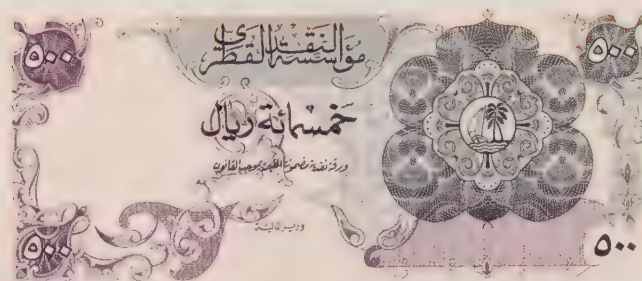 ٥٠٠
مؤسسة النقد القطري
٥٠٠
خمسمائة ريال
ورقة نقدية مضمونة القيمة بموجب القانون
وزير المالية
٥٠٠
٥٠٠